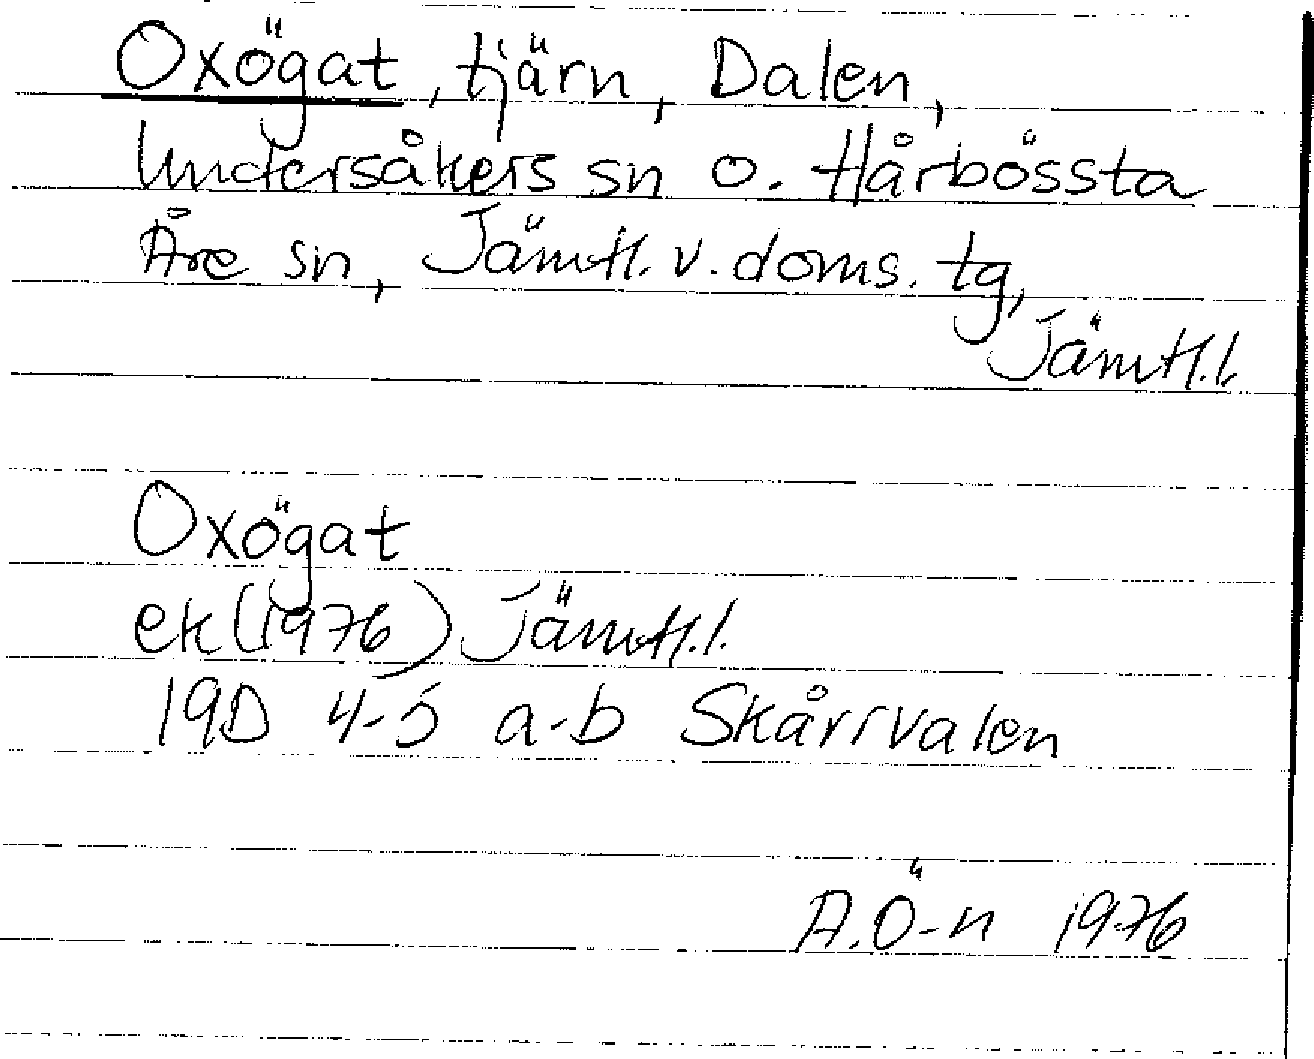 Oxögat, tjärn, Dalen,
Undersåkers sn o. Hårbössta
Åre sn, Jämtl. v. doms. tg,
Jämtl.l.
Oxögat
ek(1976) Jämtl.l.
19D 4-5 a-b Skårrvalen
A.Ö-n 1976